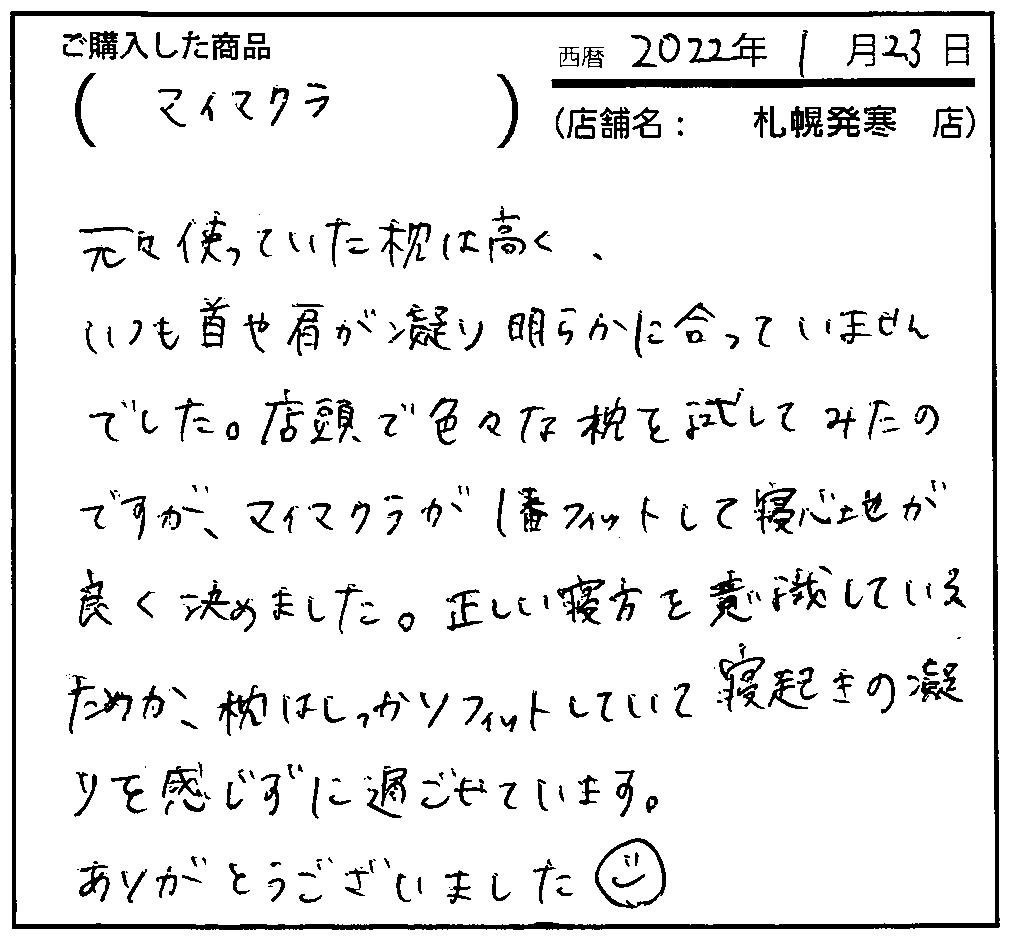 ご購入した商品
(マイマクラ)
西暦 2022年 1月23日
(店舗名: 札幌発寒 店)
元々使っていた枕は高く、
いつも首や肩が凝り明らかに合っていません
でした。店頭で色々な枕を試してみたの
ですが、マイマクラが1番フィットして寝心地が
良く決めました。正しい寝方を意識している
ためか、枕はしっかりフィットしていて寝起きの凝
りを感じずに過ごせています。
ありがとうございました